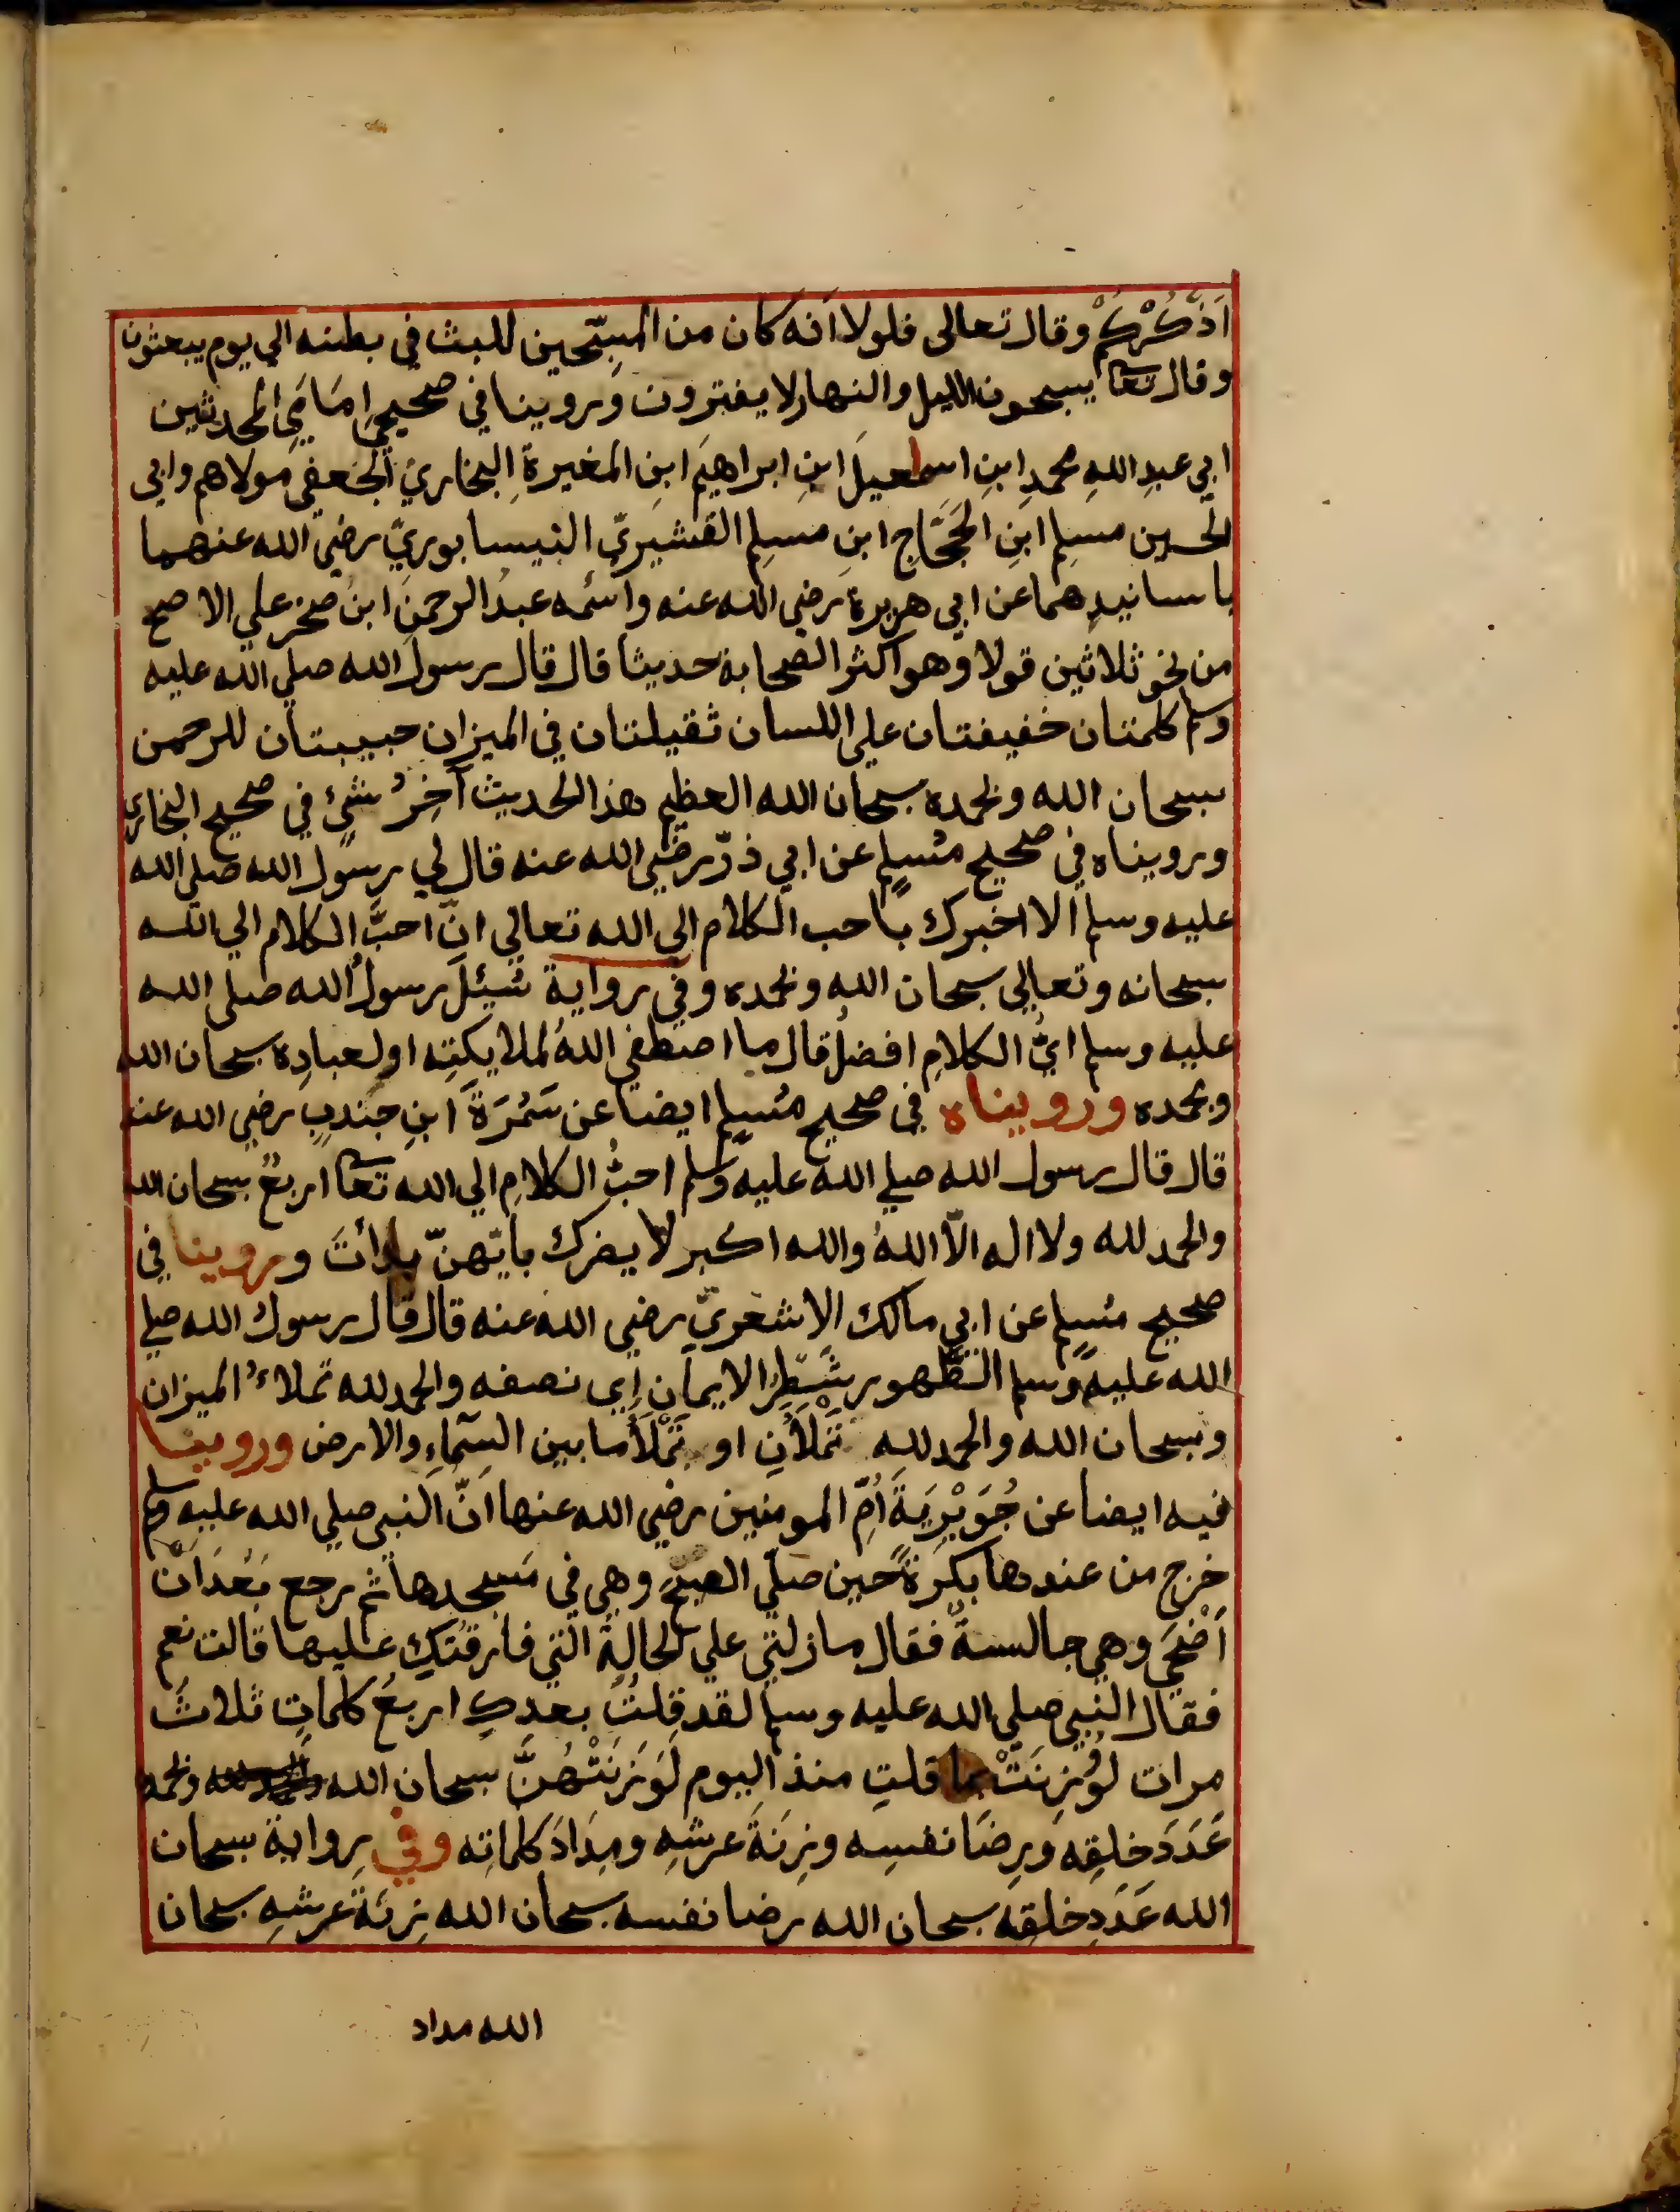 اَذْكُرْكُمْ وقال تعالى فلولا اَنه كان من المسبّحين للبث في بطنه الي يوم يبعثون
وقال تعا يسبحون الليل والنهار لا يفترون وروينا في صحيحي اِمَامَيِ المحدثين
ابي عبدِ اللهِ محمدِ ابنِ اسماعيلَ ابنِ ابراهيمَ ابنِ المغيرةِ البخاريّ الجعفي مولاهم وابي
الحسين مسلِم ابنِ الحَجَّاجِ ابنِ مسلِم القشيريّ النيسابوريّ رضي الله عنهما
باسانيدِهما عن ابي هريرة رضي الله عنه واسمُه عبدُ الرحمن ابنُ صخر علي الاصح
من نحو ثلاثين قولا وهو اكثر الصحابة حديثا قال قال رسول الله صلي الله عليه
وسلم كلمتان خفيفتان علي اللسان ثقيلتان في الميزان حبيبتان للرحمن
سبحان الله وبحمده سبحان الله العظيم هذا الحديث آخِرُ شيْءٍ في صحيح البخاري
وروينا‌ه في صحيح مُسلِمٍ عن ابي ذرّ رضي الله عنه قال لي رسول الله صلي الله
عليه وسلم الا اخبرك باحب الكلام الي الله تعالي انّ احبَّ الكلام الي الله
سبحانه وتعالي سبحان الله وبحمده وفي رواية سُئِلَ رسولُ الله صلى الله
عليه وسلم ايُّ الكلامِ افضلُ قال ما اصطفي اللهُ لملايكتِه اولعبادِه سبحان الله
وبحمده وروينا‌ه في صحيح مُسلِم ايضا عن سَمُرَةَ ابنِ جندبٍ رضي الله عنه
قال قال رسول الله صلي الله عليه وسلم احبُّ الكلامِ الي الله تعا اربعٌ سبحان الله
والحمد لله ولا اله الّا اللهُ والله اكبر لا يضرك بايّهنّ بدأتَ وروينا في
صحيح مُسلِمٍ عن ابي مالك الاشعريّ رضي الله عنه قال قال رسول الله صلي
الله عليه وسلم الطُّهور شَطْرُ الايمان اي نصفه والحمد لله تملاءُ الميزان
وسبحان الله والحمد لله تَمْلَأنِ او تَمْلَأُ ما بين السّماءِ والارض وروينا
فيه ايضا عن جُوَيْرِيَةَ اُمِّ المومنين رضي الله عنها انّ النبي صلي الله عليه وسلم
خرج من عندها بكرةً حين صلّي الصبحَ وهي في مَسجدها ثم رجع بَعْدَ اَنْ
اَضْحَي وهي جالسةٌ فقال ما زلتي علي الحالةِ التي فارقتُكِ عليها قالت نعم
فقال النبي صلي الله عليه وسلم لقد قلتُ بعدكِ اربعَ كلماتٍ ثلاثَ
مرات لو وُزِنَتْ بما قلتِ منذ اليوم لَوَزَنَتْهُنَّ سبحان الله وبحمده
عَدَدَ خلقِه ورِضَا نفسِه وزِنَةَ عرشِه ومِدَادَ كلماتِه وفي رِواية سبحان
الله عَدَدَ خلقِه سبحان الله رضا نفسه سبحان الله زِنَةَ عرشِه سبحان
الله مداد